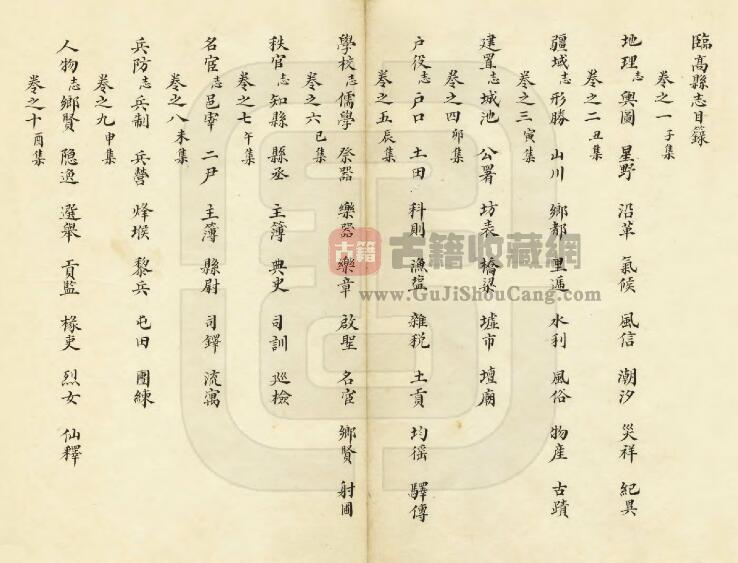 臨髙縣志目錄
卷之一子集
地理志輿圖 星野 沿革 氣候 風信 潮汐 災祥 紀異
卷之二丑集
疆域志形勝 山川 鄉都 里遞 水利 風俗 物產 古蹟
卷之三寅集
建置志城池 公署 坊表 橋梁 墟市 壇廟
卷之四卯集
户役志户口 土田 科則 漁塩 雜稅 土貢 均徭 驛傳
卷之五辰集
學校志儒學 祭器 樂器 樂章 啟聖 名宦 鄉賢 射圃
卷之六巳集
秩官志知縣 縣丞 主簿 典史 司訓 巡檢
卷之七午集
名宦志邑宰 二尹 主簿 縣尉 司鐸 流寓
卷之八未集
兵防志兵制 兵營 烽堠 黎兵 屯田 團練
卷之九申集
人物志鄉賢 隐逸 選舉 貢監 椽吏 烈女 仙釋
卷之十酉集
古籍
古籍收藏網
www.GuJiShouCang.com